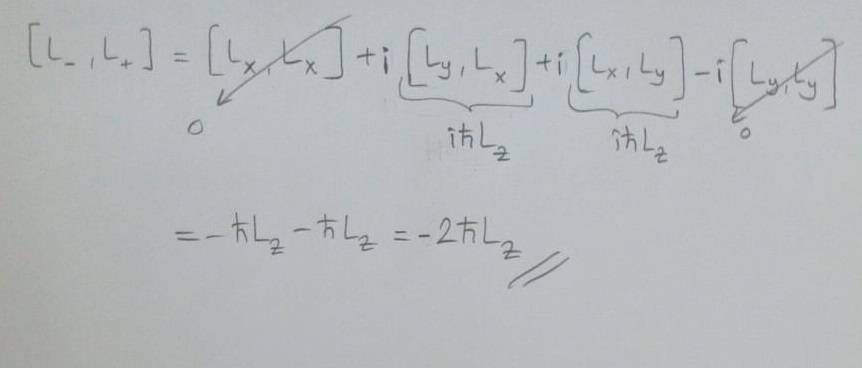 [L₋ , L₊] = [Lₓ, Lₓ] + i [L_y , Lₓ] + i [Lₓ , L_y] − i [L_y, L_y]
0 iħL_z iħL_z 0
= − ħL_z − ħL_z = −2ħL_z //